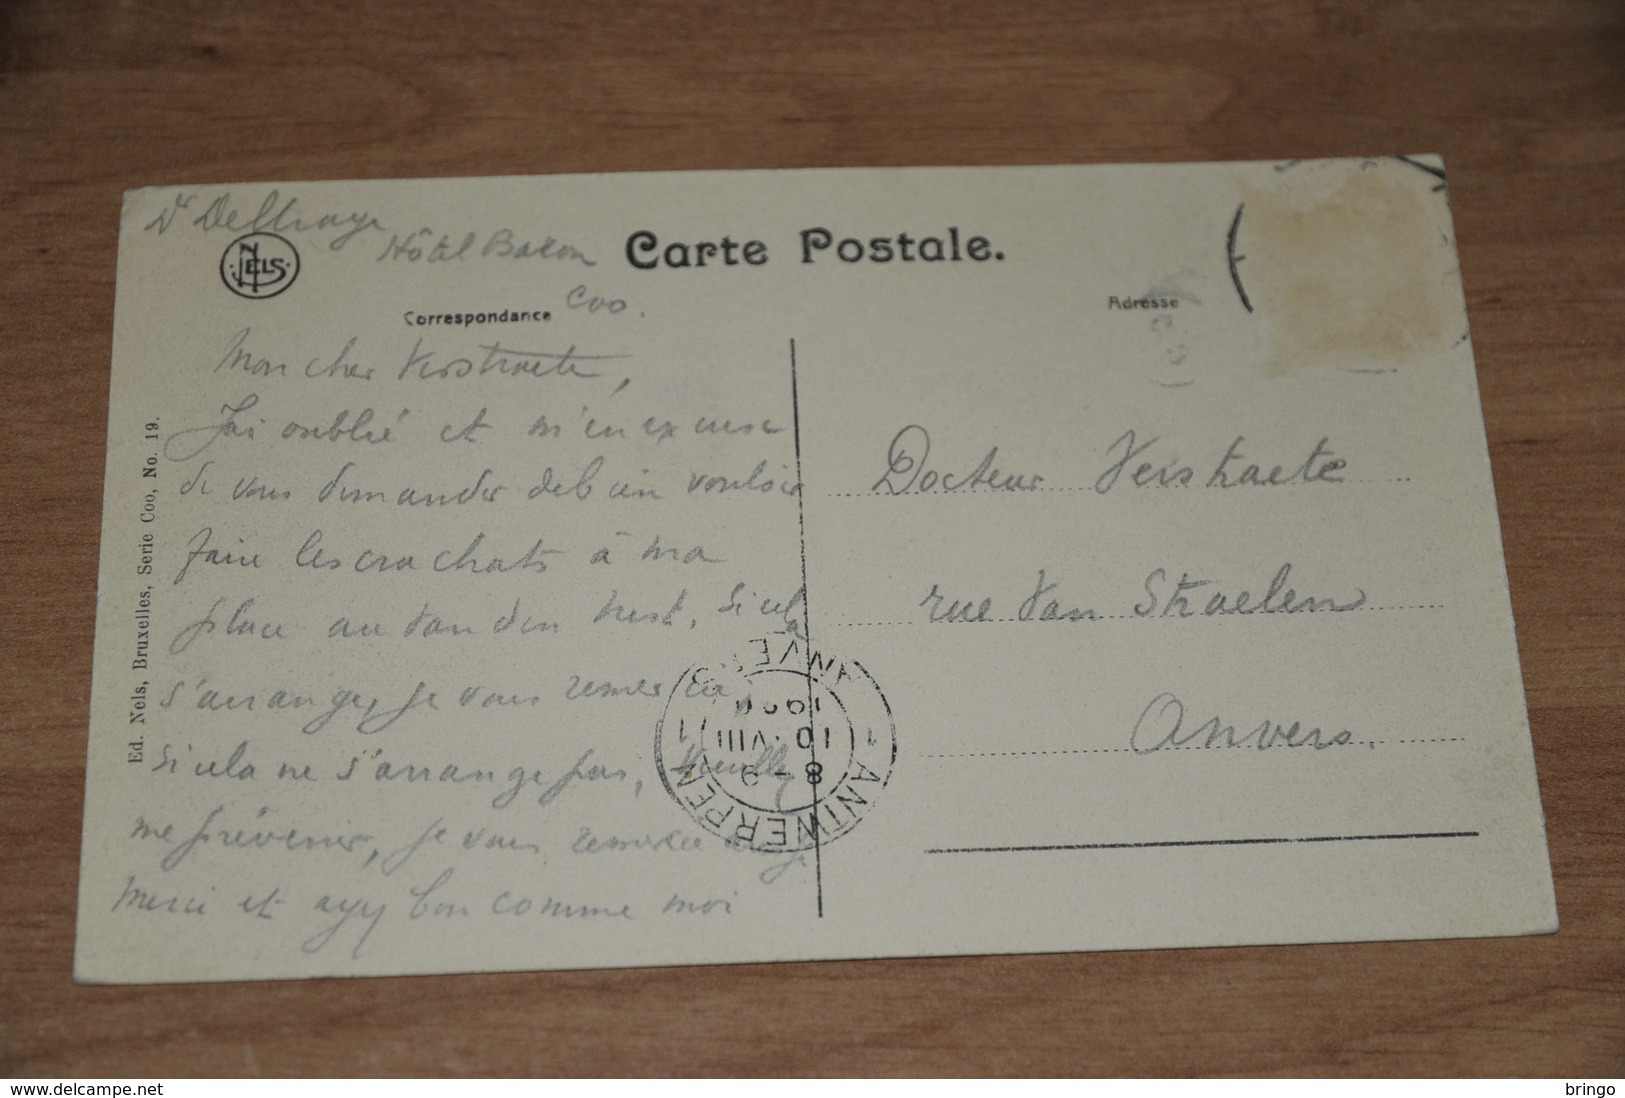 Dr Delhaye
NELS
Hôtel Baron
Coo.
Carte Postale.
Correspondance
Adresse
Mon cher Verstraete,
J'ai oublié et m'en excuse
de vous demander de bien vouloir
faire les crachats à ma
place au
Si cela
s'arrange, je vous remercie,
si cela ne s'arrange pas, veuillez
me prévenir, je vous remercie
Merci et bon comme moi
Ed. Nels, Bruxelles, Serie Coo, No. 19.
Docteur Verstraete
rue Van Straelen
Anvers.
ANVERS
1 ANTWERPEN 1
8-9
10 VIII
delcampe.net
bringo